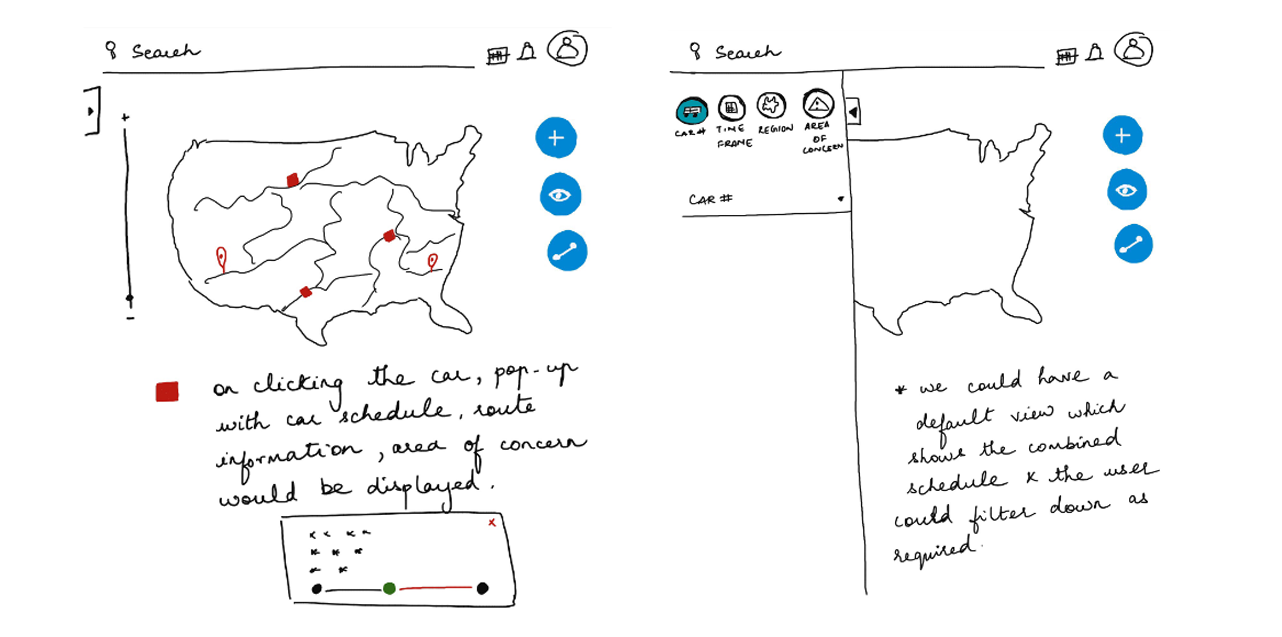 Search
+
-
on clicking the car, pop-up
with car schedule, route
information, area of concern
would be displayed.
x
Search
CAR#
TIME
FRAME
REGION
AREA
OF
CONCERN
CAR #
* we could have a
default view which
shows the combined
schedule & the user
could filter down as
required.